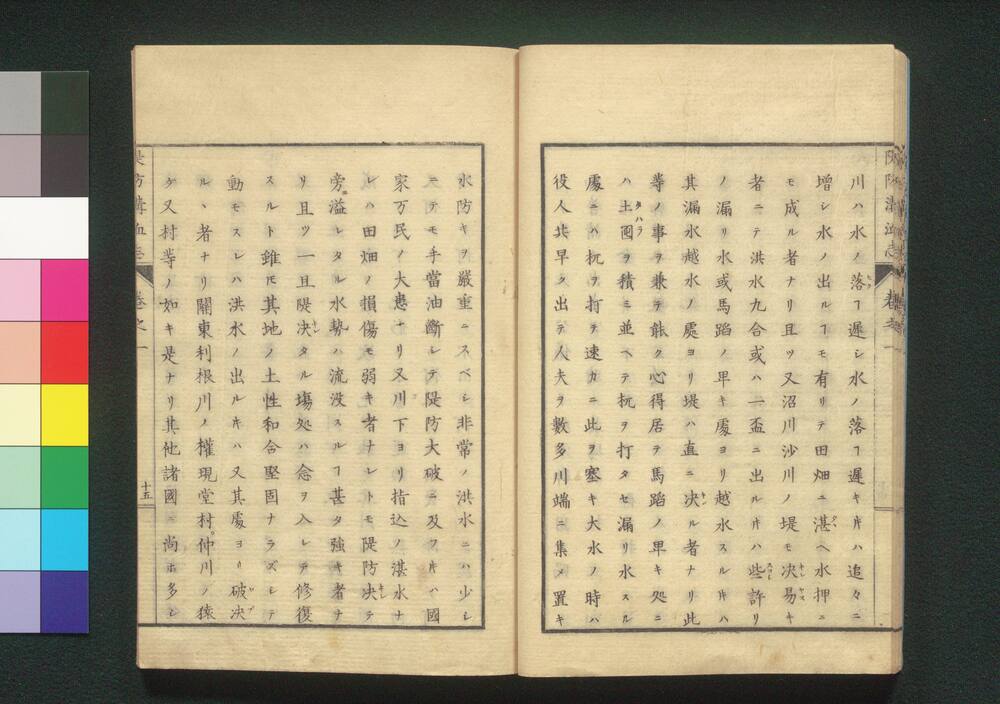 川ハ水ノ落ヿ遲シ水ノ落ヿ遲キ𪜈ハ追々ニ
増シ水ノ出ルヿモ有リテ田畑ニ湛ヘ水押ニ
モ成ル者ナリ且ツ又沼川沙川ノ堤モ决易キ
者ニテ洪水九合或ハ一盃ニ出ル𪜈ハ些許リ
ノ漏リ水或馬蹈ノ卑キ處ヨリ越水スル𪜈ハ
其漏水越水ノ處ヨリ堤ハ直ニ决ル者ナリ此
等ノ事ヲ兼テ能ク心得居テ馬蹈ノ卑キ処ニ
ハ土囤ヲ積ミ並ヘテ杭ヲ打タセ漏リ水スル
處ニハ杭ヲ打チ速カニ此ヲ塞キ大水ノ時ハ
役人共早ク出テ人夫ヲ數多川端ニ集メ置キ
水防キヲ嚴重ニスベシ非常ノ洪水ニハ少シ
ニテモ手當油斷シテ隄防大破ニ及フ𪜈ハ國
家万民ノ大患ナリ又川下ヨリ指込ノ湛水ナ
レハ田畑ノ損傷モ弱キ者ナレトモ隄防决テ
旁溢レタル水勢ハ流没スルヿ甚タ強キ者ナ
リ且ツ一旦隄决タル塲処ハ念ヲ入レテ修復
スルト雖𪜈其地ノ土性和合堅固ナラズシテ
動モスレハ洪水ノ出ル𪜈ハ又其處ヨリ破决
ル丶者ナリ關東利根川ノ權現堂村仲川ノ猿
ケ又村等ノ如キ是ナリ其他諸國ニ尚ホ多シ
卷之一
十五